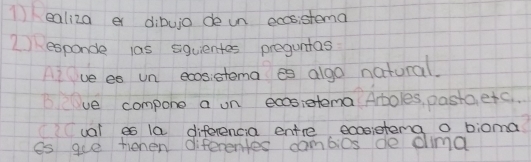 1) Realiza er dibujo de un ecosistema
2) Responde las siguientes preguntas
A) ¿Que es un ecosistema? es algo natural.
B) ¿Que compone a un ecosistema? Arboles, pasto etc..
C) ¿Cual es la diferencia entre ecosistema o bioma?
es que tienen diferentes cambios de clima